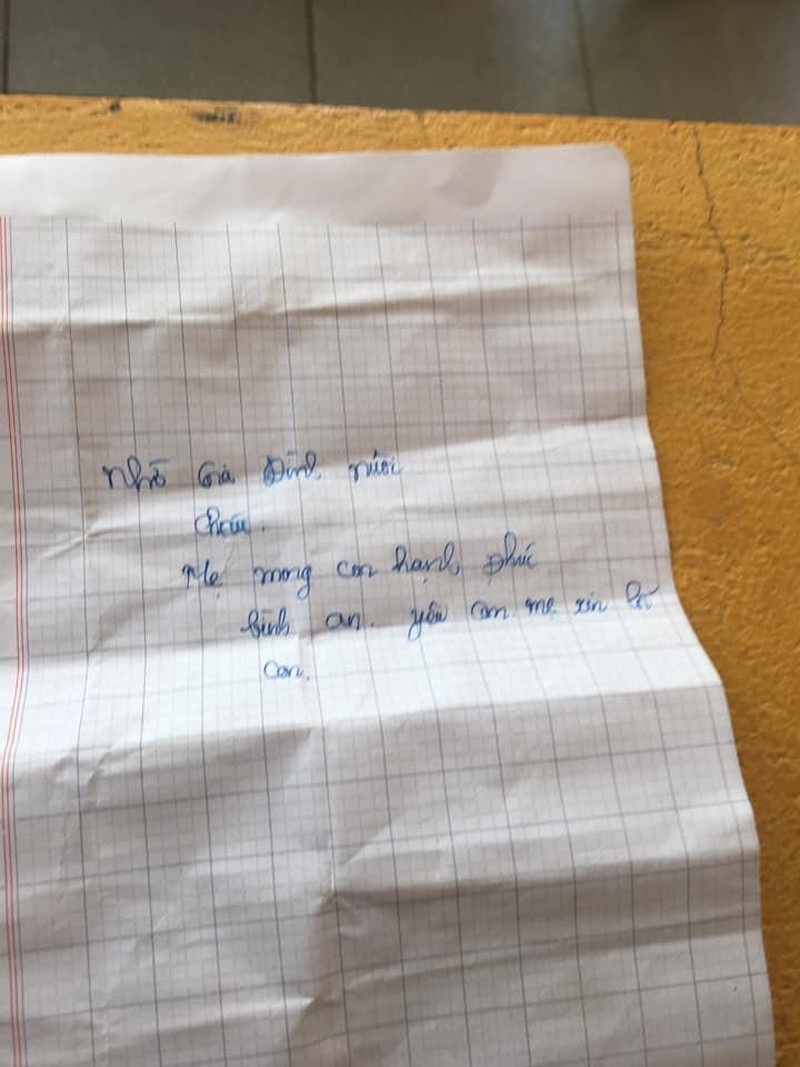 Nhờ Gia Đình nuôi
cháu.
Mẹ mong con hạnh phúc
bình an. yêu con mẹ xin lỗi
con.